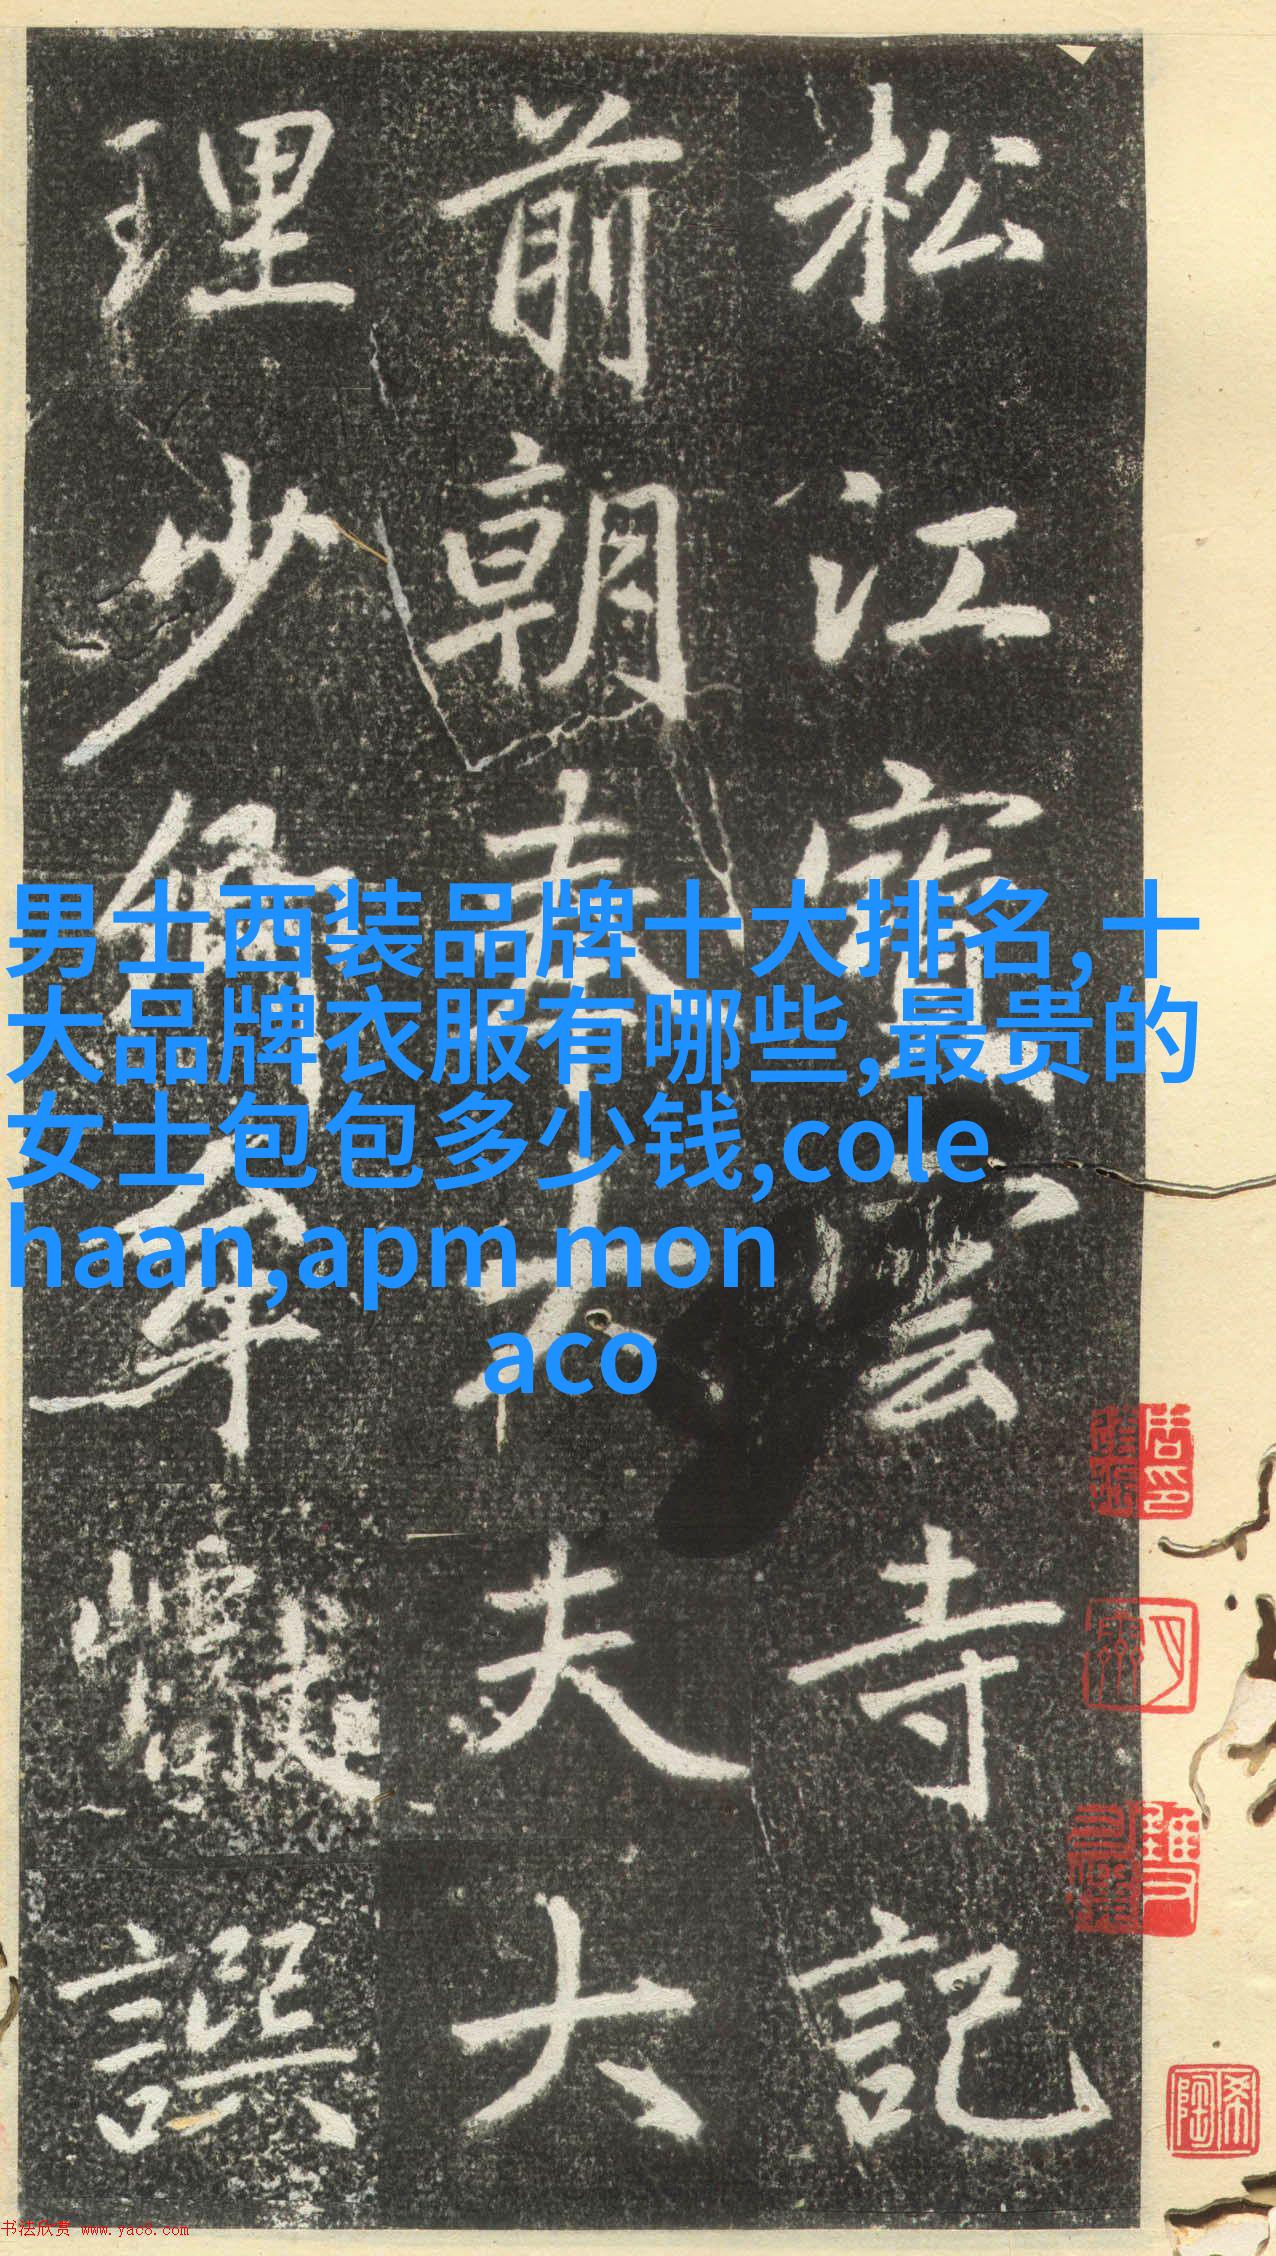 松江寶雲寺記
前朝奉大夫大
理少卿牟巘譔
男士西装品牌十大排名,十
大品牌衣服有哪些,最贵的
女士包包多少钱,cole
haan,apm mon
aco
书法欣赏 www.yac8.com